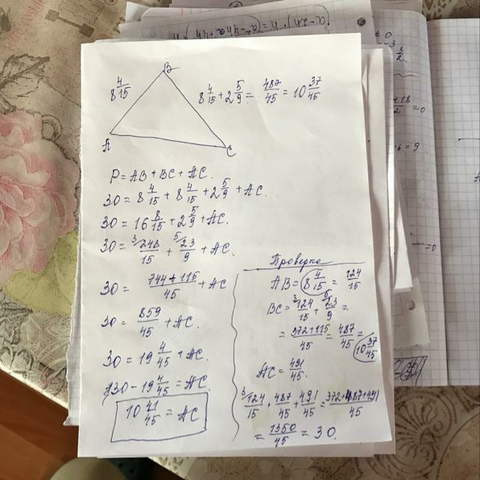 B
8 4/15
8 4/15 + 2 5/9 = 487/45 = 10 37/45
A
C
P = AB + BC + AC.
30 = 8 4/15 + 8 4/15 + 2 5/9 + AC
30 = 16 8/15 + 2 5/9 + AC.
30 = ³248/15 + ⁵23/9 + AC
30 = 744 + 115/45 + AC
30 = 859/45 + AC.
30 = 19 4/45 + AC.
30 - 19 4/45 = AC
10 41/45 = AC
Проверка
AB = 8 4/15 = 124/15
BC = ³124/15 + ⁵23/9 =
= 372+115/45 = 487/45 =
10 37/45
AC = 491/45.
³124/15 + 487/45 + 491/45 = 372+487+491/45
= 1350/45 = 30.